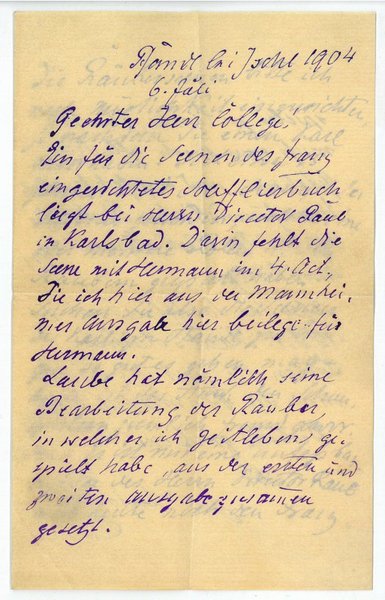 Pfandl bei Ischl 1904
6. Juli
Geehrter Herr College,
Ein für die Scenen des Franz
eingerichtetes Soufflierbuch
liegt bei Herrn Director Raul
in Karlsbad. Darin fehlt die
Scene mit Hermann im 4. Act,
die ich hier aus der Mannhei-
mer Ausgabe hier beilege für
Hermann.
Laube hat nämlich seine
Bearbeitung der Räuber,
in welcher ich zeitlebens ge-
spielt habe, aus der ersten und
zweiten Ausgabe zusamen
gesetzt.